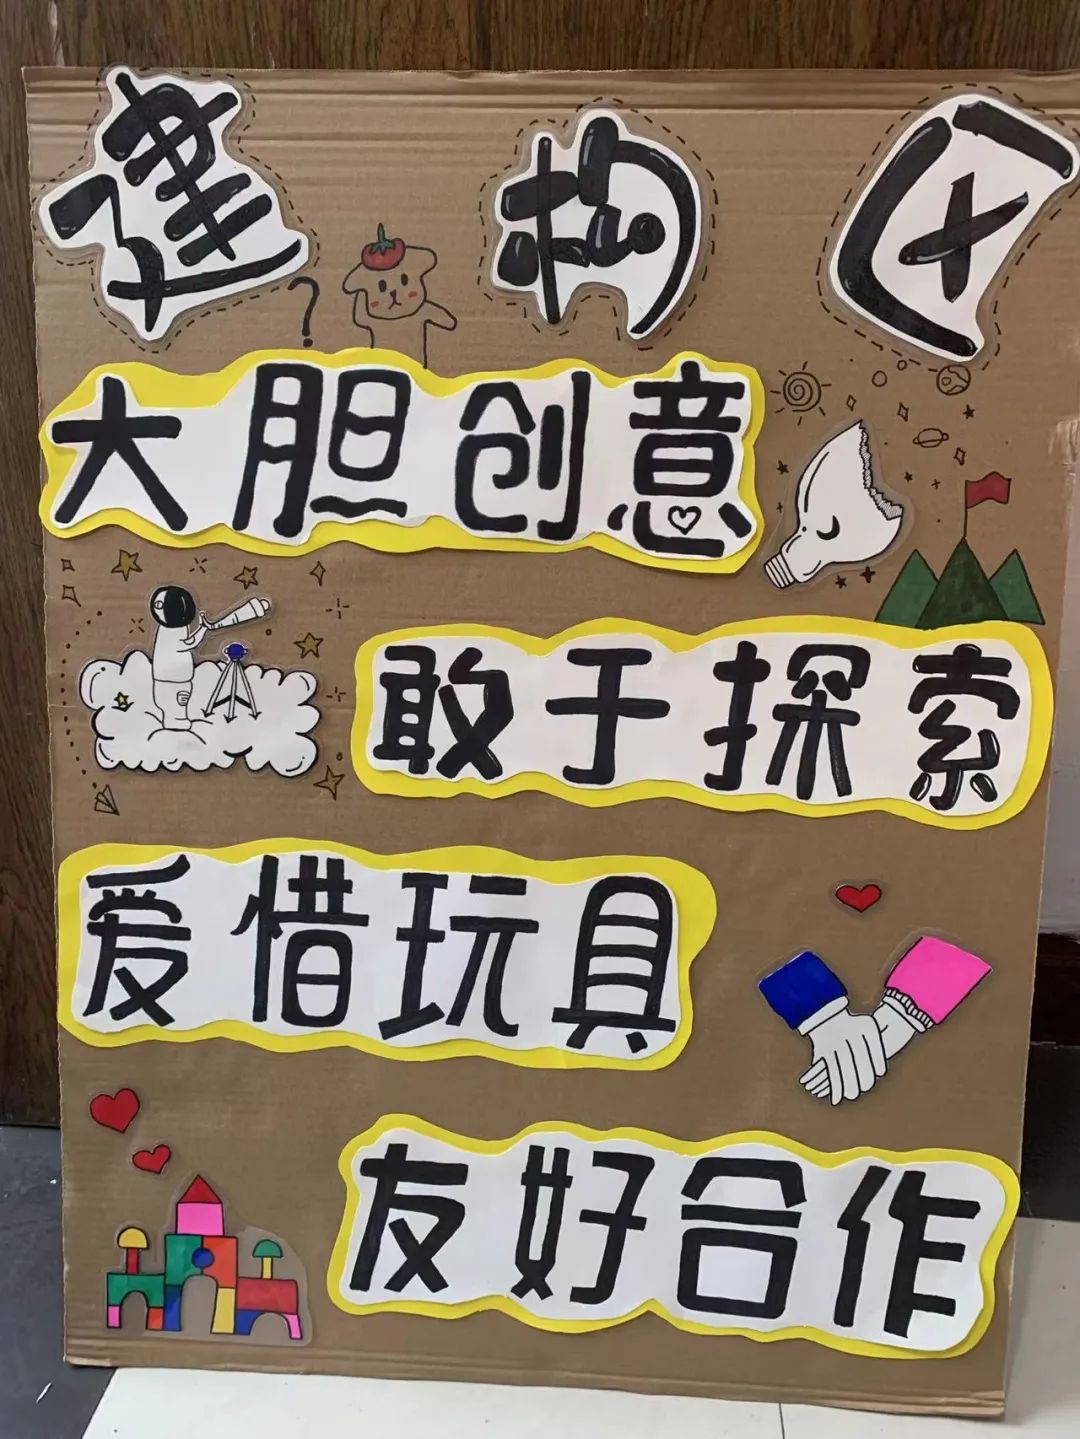 建构区
?
大胆创意
敢于探索
爱惜玩具
友好合作